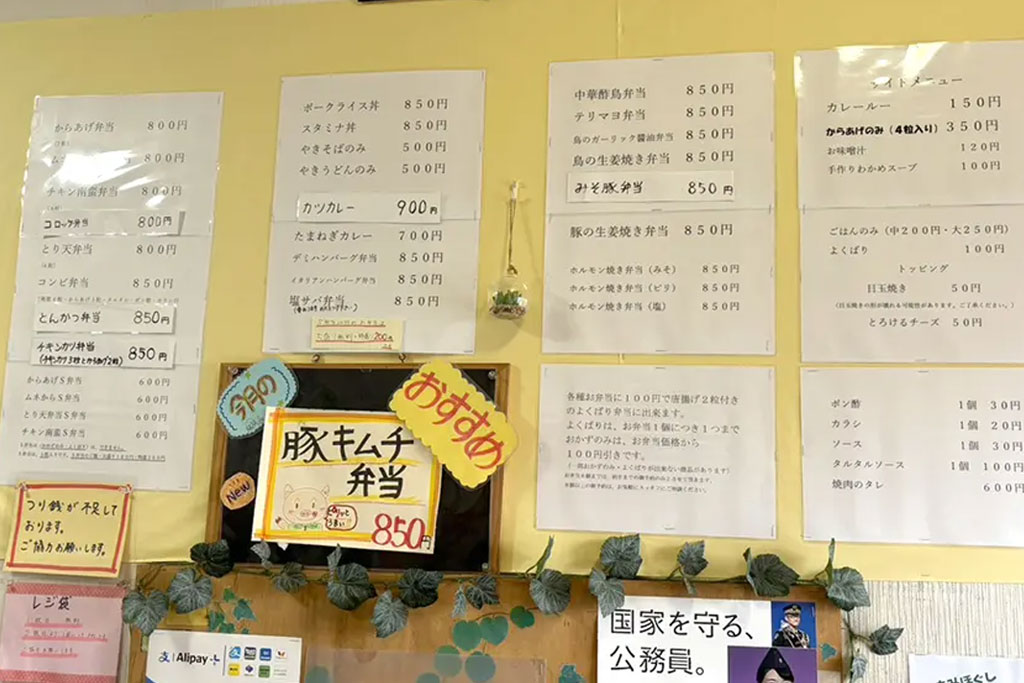 からあげ弁当 800円
800円
チキン南蛮弁当 800円
コロッケ弁当 800円
とり天弁当 800円
コンビ弁当 800円
とんかつ弁当 850円
チキンカツ弁当 850円
からあげS弁当 600円
ムネからS弁当 600円
とり天弁当S弁当 600円
チキン南蛮S弁当 600円
ポークライス丼 850円
スタミナ丼 850円
やきそばのみ 500円
やきうどんのみ 500円
カツカレー 900円
たまねぎカレー 700円
デミハンバーグ弁当 850円
イタリアンハンバーグ弁当 850円
塩サバ弁当 850円
中華酢鳥弁当 850円
テリマヨ弁当 850円
鳥のガーリック醤油弁当 850円
鳥の生姜焼き弁当 850円
みそ豚弁当 850円
豚の生姜焼き弁当 850円
ホルモン焼き弁当(みそ) 850円
ホルモン焼き弁当(ピリ) 850円
ホルモン焼き弁当(塩) 850円
サイドメニュー
カレールー 150円
からあげのみ(4粒入り) 350円
お味噌汁 120円
手作りわかめスープ 100円
ごはんのみ(中200円・大250円)
よくばり 100円
トッピング
目玉焼き 50円
(目玉焼きの形が壊れる可能性があります。ご了承ください。)
とろけるチーズ 50円
各種お弁当に100円で唐揚げ2粒付き
のよくばり弁当に出来ます。
よくばりは、お弁当1個につき1つまで
おかずのみは、お弁当価格から
100円引きです。
ポン酢 1個 30円
カラシ 1個 20円
ソース 1個 30円
タルタルソース 1個 100円
焼肉のタレ 600円
今月の
おすすめ
New
豚キムチ
弁当
850円
つり銭が不足して
おります。
ご協力お願いします。
レジ袋
Alipay+
国家を守る、
公務員。